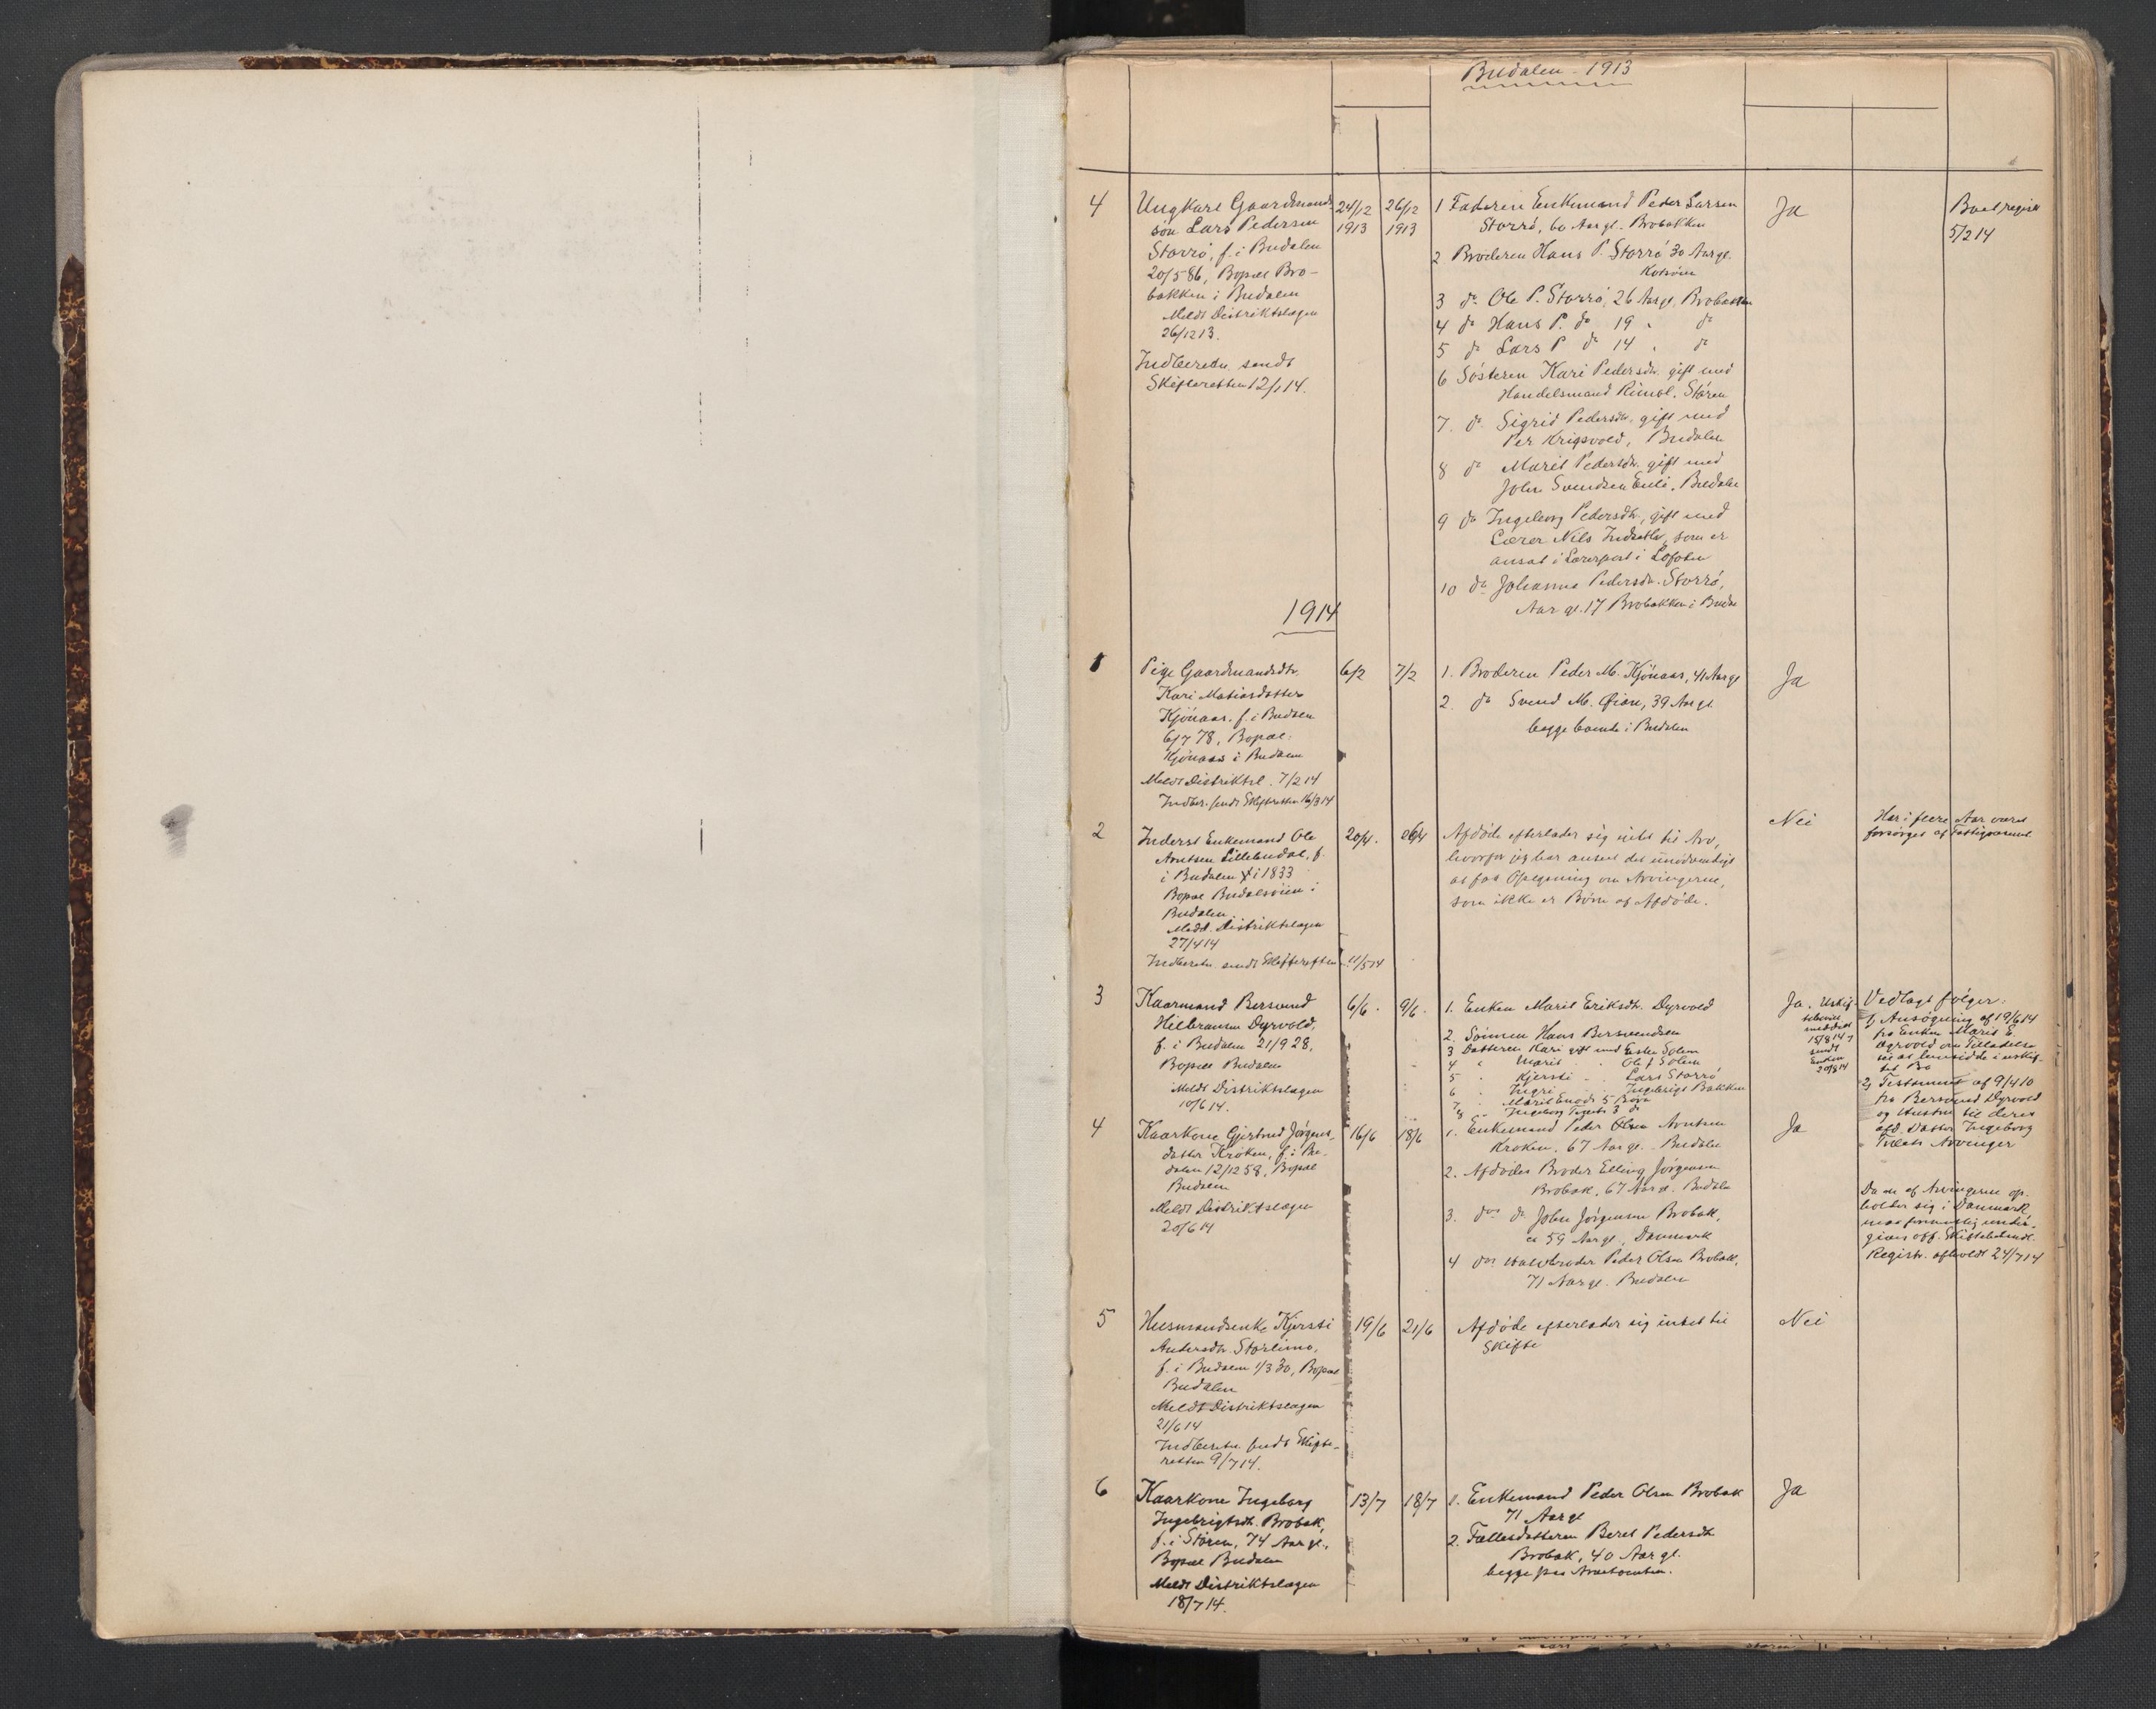 Budalen - 1913
4
Ungkarl Gaardmands-
søn Lars Pedersen
Storrø, f. i Budalen
20/5 86, Bopæl Bro-
bakken i Budalen
Meldt Distriktslægen
26/12 13.
Indberetn. sendt
Skifteretten 12/1 14.
24/12
1913
26/12
1913
1 Faderen Enkemand Peder Larsen
Storrø, 60 Aar gl. Brobakken
2 Broderen Hans P. Storrø 30 Aar gl.
Kotsøien
3 do Ole P. Storrø, 26 Aar gl. Brobakken
4 do Hans P. do 19 " do
5 do Lars P do 14 " do
6 Søsteren Kari Pedersdtr. gift med
Handelsmand Rimol, Støren
7. do Sigrid Pedersdtr. gift med
Per Krigsvold, Budalen
8 do Marit Pedersdtr. gift med
John Svendsen Enli, Budalen
9 do Ingeborg Pedersdtr., gift med
Lærer Nils Indsetli, som er
ansat i Lærerpost i Lofoten
10 do Johanna Pedersdtr. Storrø,
Aar gl. 17 Brobakken i Buda
Ja
Boet regist
5/2 14
1914
1
Pige Gaardmandsdtr.
Kari Matiasdatter
Kjønaas. f. i Budalen
6/7 78, Bopæl:
Kjønaas i Budalen
Meldt Distriktsl. 7/2 14
Indber. sendt Skifteretten 16/3 14
6/2
7/2
1. Broderen Peder M. Kjønaas, 41 Aar gl
2. do Svend M. Øian, 39 Aar gl.
begge boende i Budalen
Ja
2
Inderst Enkemand Ole
Arntsen Lillebudal, f.
i Budalen i 1833
Bopæl Budalsvien i
Budalen.
Meldt Distriktslægen
27/4 14
Indberetn. sendt Skifteretten 11/5 14
20/4.
26/4
Afdøde efterlader sig intet til Arv,
hvorfor jeg har anset det unødvendigt
at faa Oplysning om Arvingerne,
som ikke er Børn af Afdøde.
Nei
Har i flere Aar været
forsørget af Fattigvæsenet
3
Kaarmand Bersvend
Hilbransen Dyrvold,
f. i Budalen 21/9 28,
Bopæl Budalen
Meldt Distriktslægen
10/6 14.
6/6.
9/6.
1. Enken Marit Eriksdtr. Dyrvold
2. Sønnen Hans Bersvendsen
3 Datteren Kari gift med Esten Solem
4 " Marit " " Ole J Solem
5 " Kjersti " " Lars Storrø
6 " Ingri " Ingebrigt Bakken
7 " Marit Enods 5 Børn
8 " Ingeborg 3 do
Ja. Uskif-
tebevill
meddelt
15/8 14
sendt
Enken
20/8 14
Vedlagt følger:
1, Ansøgning af 19/6 14
fra Enken Marit E.
Dyrvold om Tilladelse
til at hensidde i uskif-
tet Bo
2, Testament af 9/4 10
fra Bersvend Dyrvold
og Hustru til deres
afd. Datter Ingeborg
Arvinger
4
Kaarkone Gjertrud Jørgens-
datter Kroken, f. i Bu-
dalen 12/12 58, Bopæl
Budalen
Meldt Distriktslægen
20/6 14
16/6
18/6
1. Enkemand Peder Olsen Arntsen
Kroken, 67 Aar gl. Budalen
2. Afdødes Broder Elling Jørgensen
Brobak, 67 Aar gl. Budalen
3. dos do John Jørgensen Brobak,
ca 59 Aar gl., Danmark
4 dos Halvbroder Peder Olsen Brobak,
71 Aar gl. Budalen
Ja
Da en af Arvingerne op-
holder sig i Danmark,
maa formentlig undér-
gives off. Skiftebehandl.
Registr. afholdt 24/7 14
5
Husmandsenke Kjersti
Andersdtr. Storlimo,
f. i Budalen 1/3 30, Bopæl
Budalen
Meldt Distriktslægen
21/6 14
Indberetn. sendt Skifte-
retten 9/7 14.
19/6
21/6
Afdøde efterlader sig intet til
Skifte
Nei
6
Kaarkone Ingeborg
Ingebrigtsdtr. Brobak,
f. i Støren, 74 Aar gl.,
Bopæl Budalen
Meldt Distriktslægen
18/7 14.
13/7
18/7
1. Enkemand Peder Olsen Brobak
71 Aar gl
2. Fællesdatteren Beret Pedersdtr.
Brobak, 40 Aar gl.
begge paa Arvetomten.
Ja